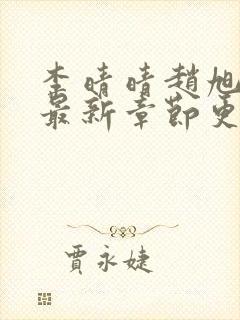 李晴晴趙旭
最新章節更
賈永婕